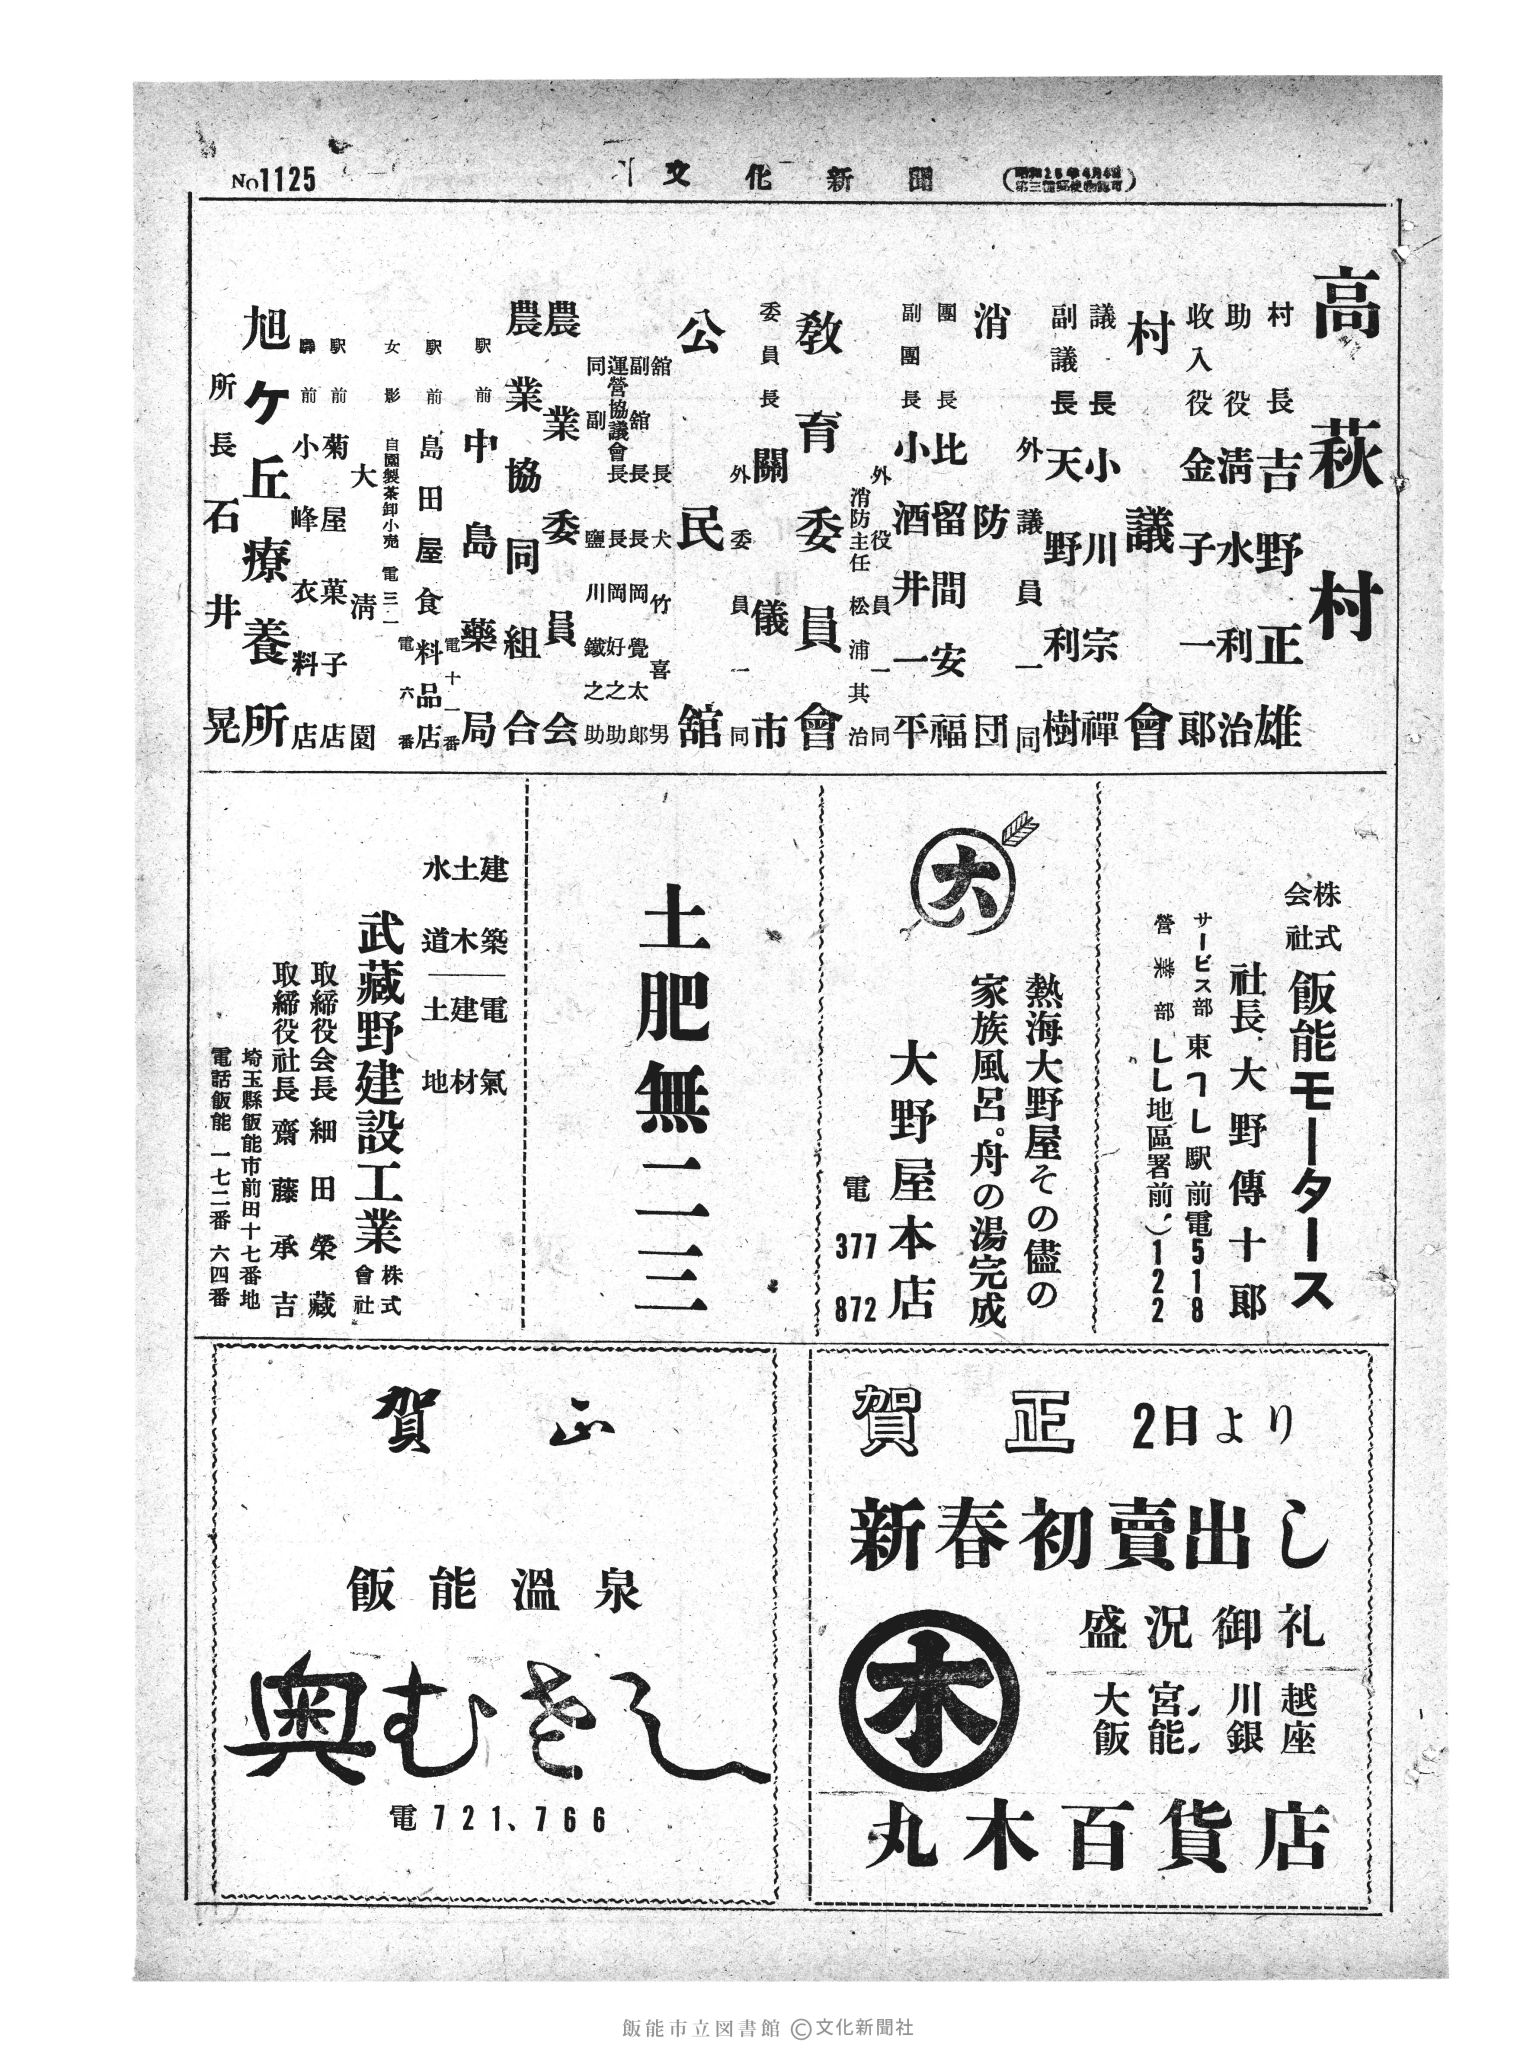 No1125
文化新聞
(昭和26年4月4日
第三種郵便物認可)
高萩村
村長 吉野正雄
助役 淸水利治
收入役 金子一郞
村議會
議長 小川宗禪
副議長 天野利樹
外議員一同
消防団
團長 比留間安福
副團長 小酒井一平
外役員一同
消防主任 松浦其治
敎育委員會
委員長 關儀市
外委員一同
公民舘
舘長 犬竹喜男
副舘長 長岡覺太郎
運營協議會長 長岡好之助
同副 鹽川鐵之助
農業委員会
農業協同組合
駅前 中島藥局
電十一番
駅前 島田屋食料品店
電六番
女影 自園製茶卸小売 電三一
大淸園
駅前 菊屋菓子店
驛前 小峰衣料店
旭ケ丘療養所
所長 石井晃
株式会社 飯能モータース
社長 大野傳十郞
サービス部 東飯能駅前電518
営業部
地區署前 122
大
熱海大野屋その儘の
家族風呂。舟の湯完成
大野屋本店
電 377
872
土肥無二三
建築 電氣
土木 建材
水道 土地
武藏野建設工業株式會社
取締役会長 細田榮藏
取締役社長 齋藤承吉
埼玉縣飯能市前田十七番地
電話飯能一七二番 六四番
賀正 2日より
新春初賣出し
盛況御礼
木
大宮、川越
飯能、銀座
丸木百貨店
賀正
飯能溫泉
奥むさし
電721、766
飯能市立図書館 ©文化新聞社